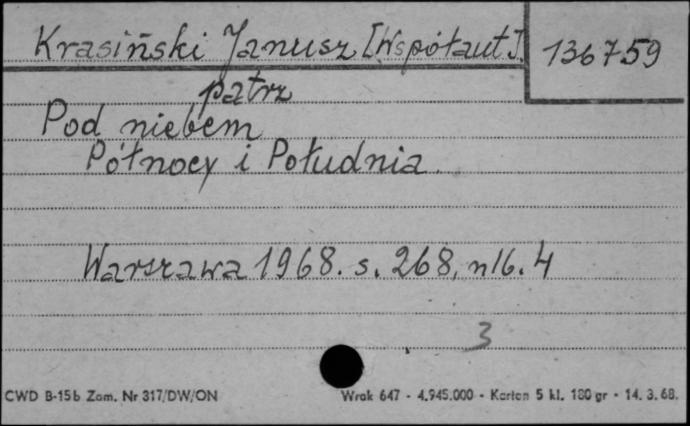 Krasiński Janusz [Współaut].
136759
patrz
Pod niebem
Północy i Południa.
Warszawa 1968. s. 268, nlb. 4
3
CWD B-15b Zam. Nr 317/DW/ON
Wrak 647 - 4.945.000 - Karton 5 kl. 180 gr - 14. 3. 68.